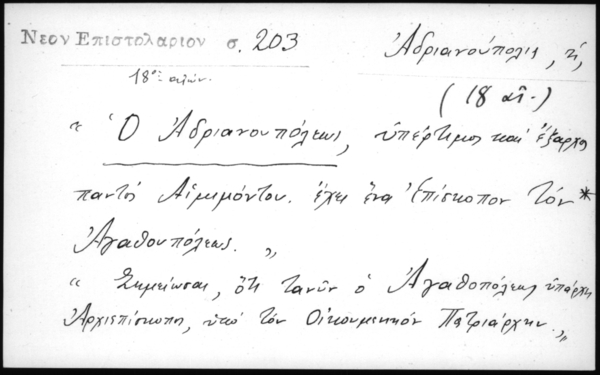 Νεον Επιστολαριον σ. 203
Ἀδριανούπολις, ἡ,
18ος αἰών.
(18 αἰ.)
" Ὁ Ἀδριανουπόλεως, ὑπέρτιμος καὶ ἔξαρχος
παντὸς Αἱμιμόντου. ἔχει ἕνα Ἐπίσκοπον τὸν *
Ἀγαθουπόλεως. "
" Σημείωσαι, ὅτι τανῦν ὁ Ἀγαθοπόλεως ὑπάρχει
Ἀρχιεπίσκοπος, ὑπὸ τὸν Οἰκουμενικὸν Πατριάρχην. "